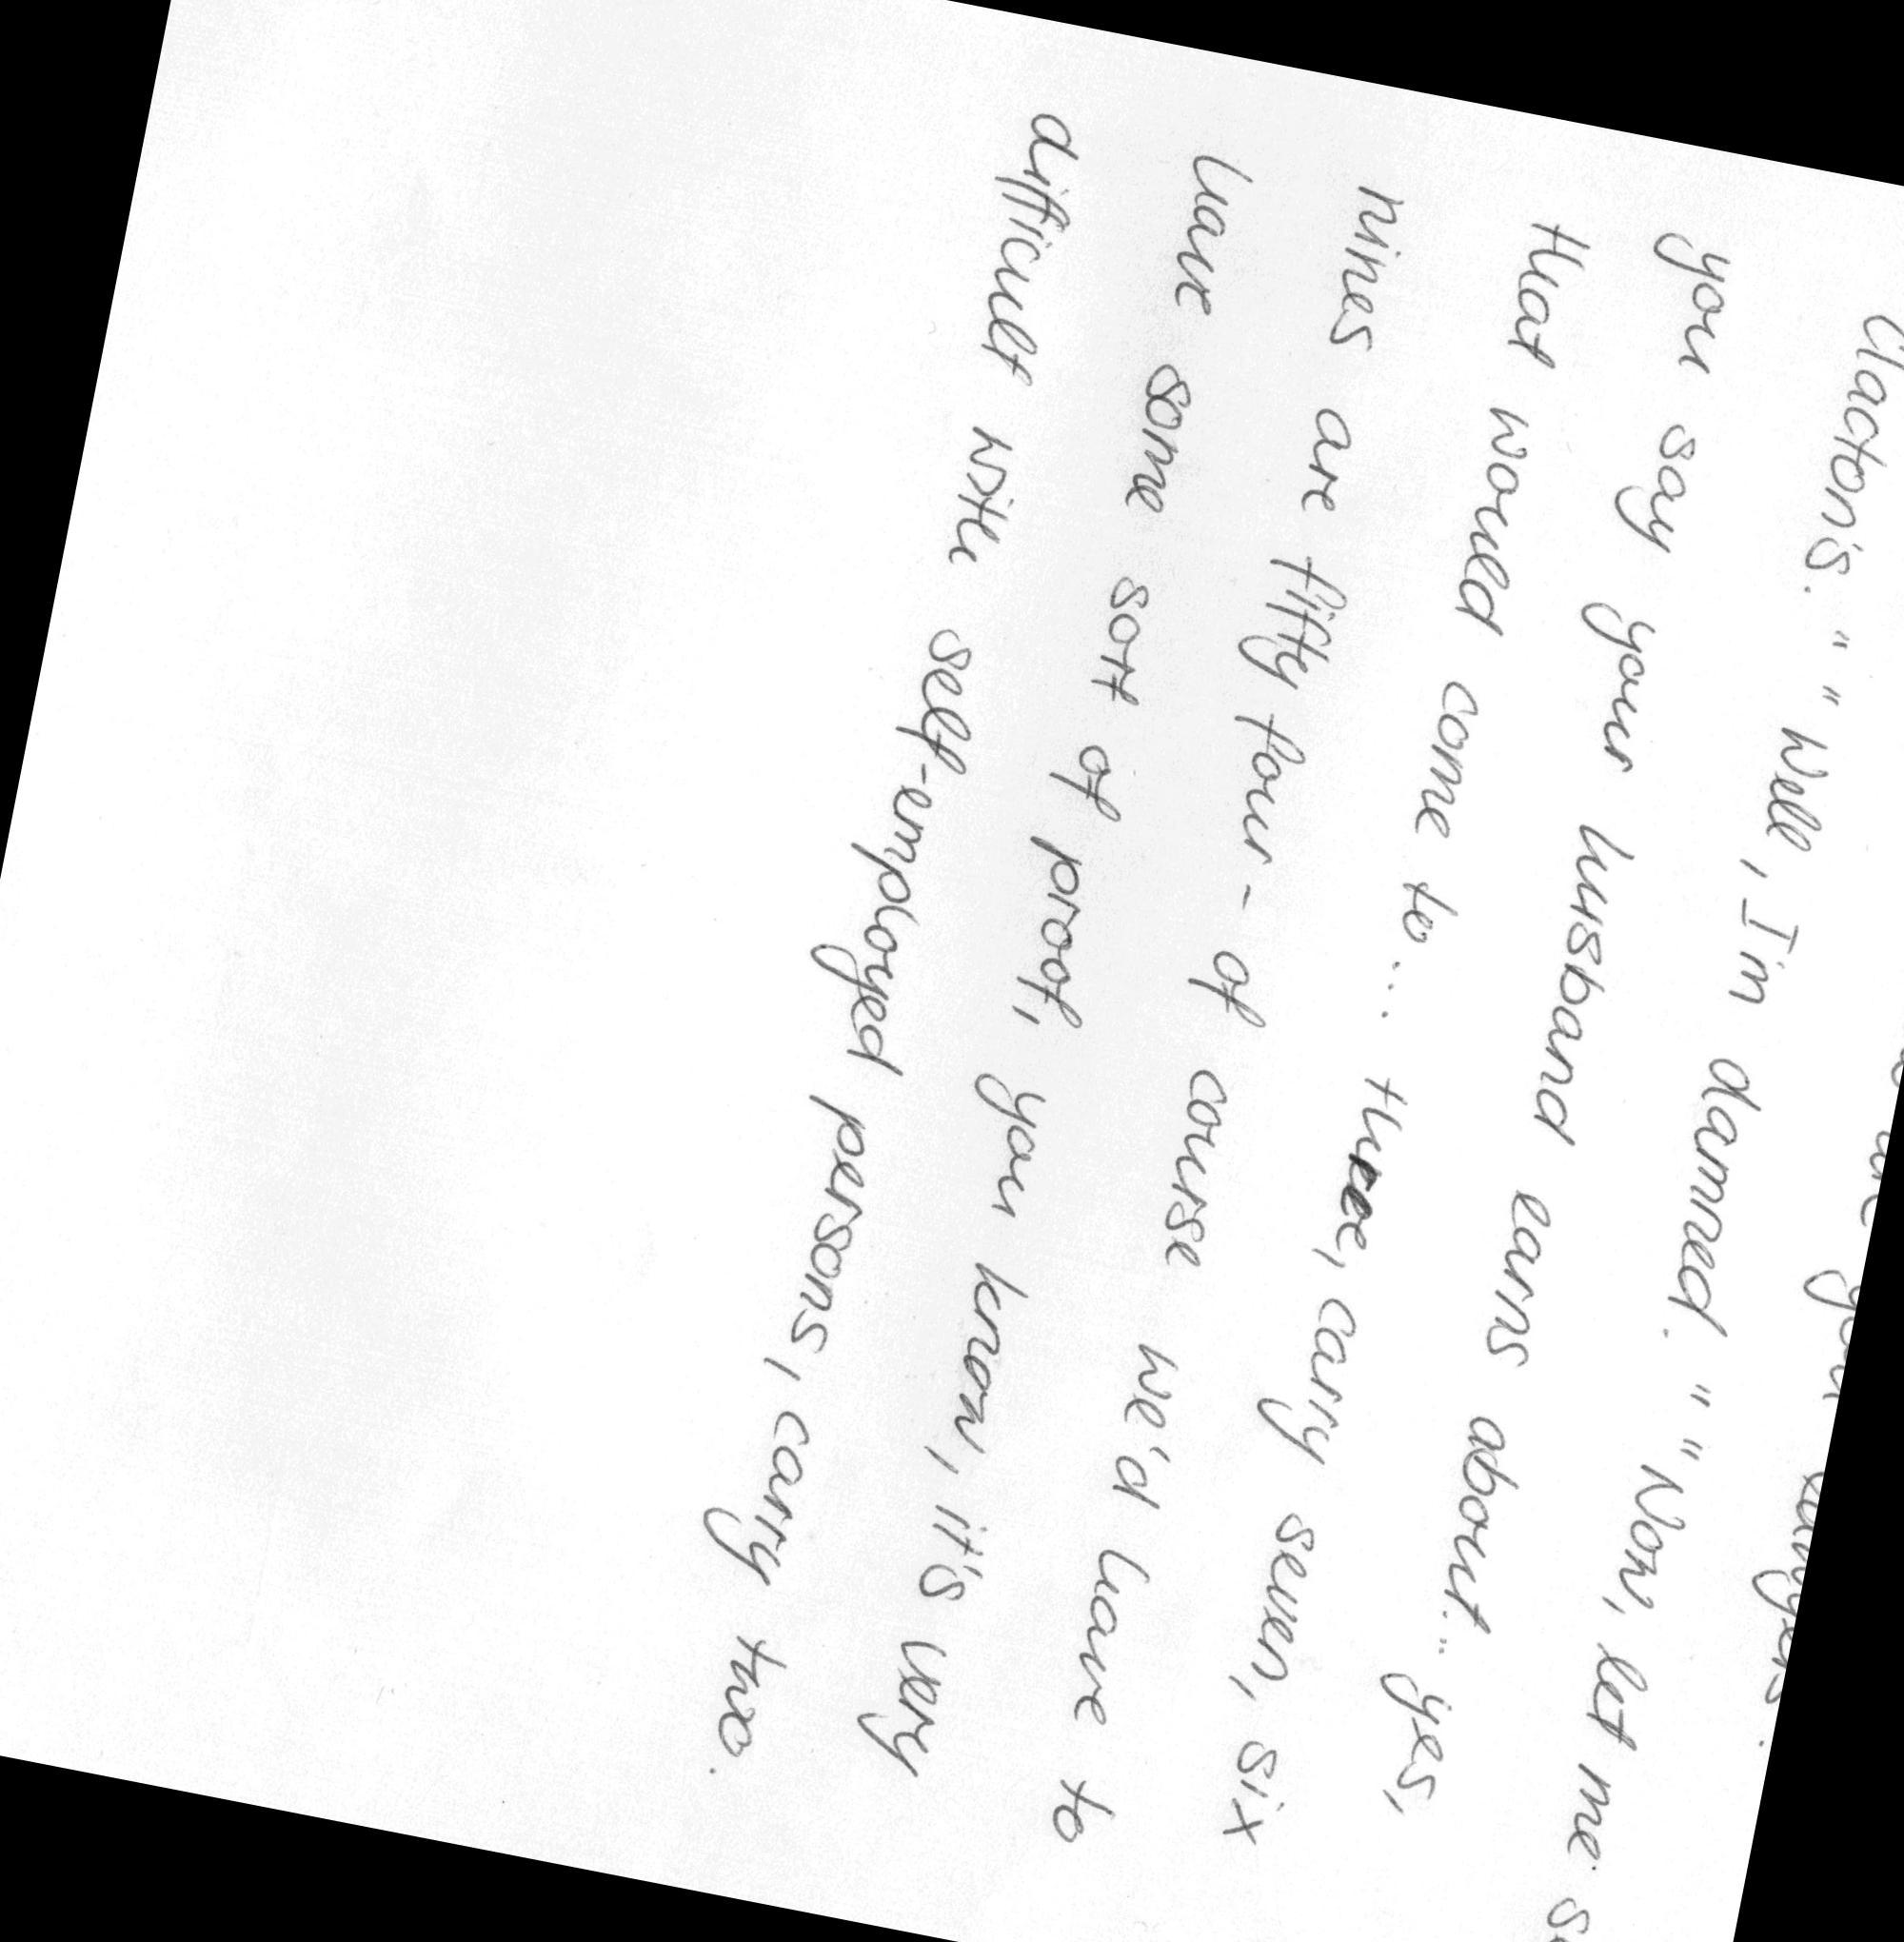 Clacton's. " " Well, I'm damned. " " Now, let me
you say your husband earns about... yes,
that would come to... three, carry seven, six
nines are fifty four - of course we'd have to
have some sort of proof, you know, it's very
difficult with self-employed persons, carry two.